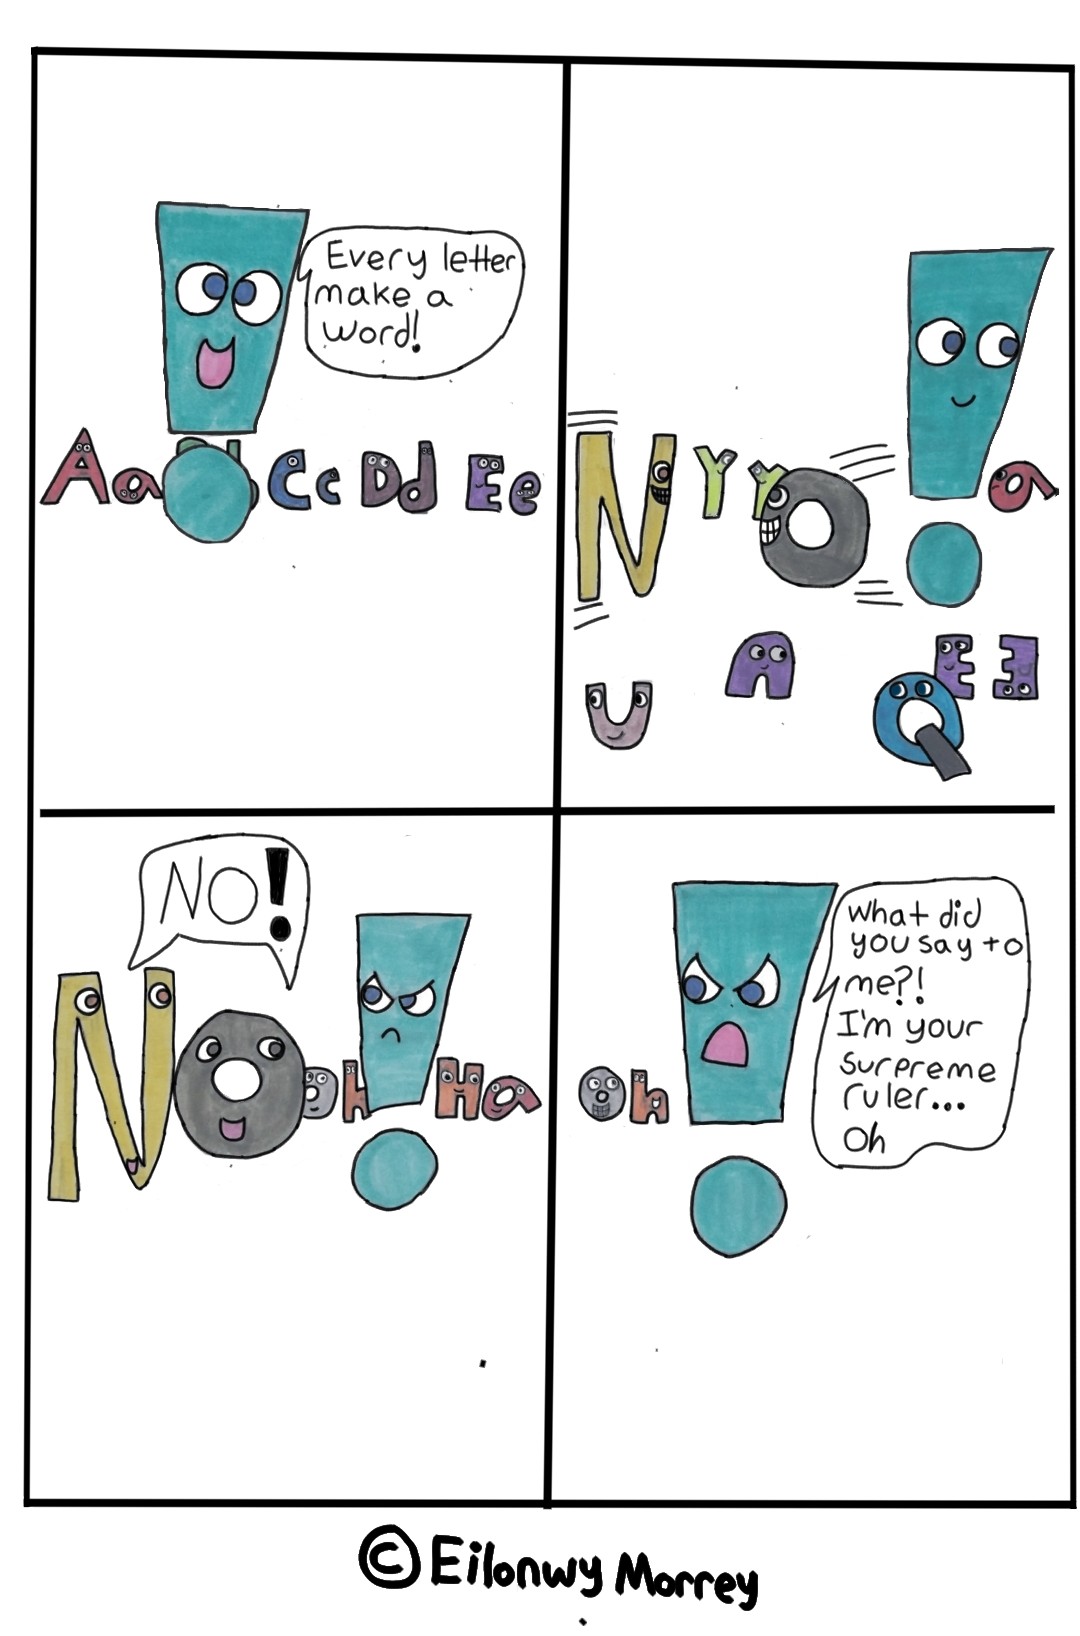 Every letter
make a
word!
Aa Cc Dd Ee
N Y Y O ! a
U n Q E E
NO!
NO oh! Ha
oh!
What did
you say to
me?!
I'm your
surpreme
ruler...
Oh
© Eilonwy Morrey